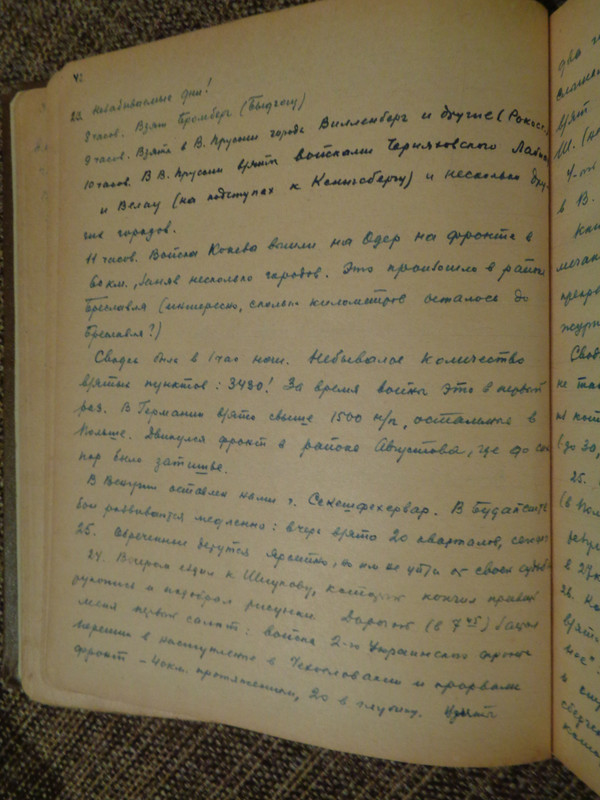 42
23. Незабываемые дни!
8 часов. Взят Бромберг (Быдгощ)
9 часов. Взяты в В. Пруссии города Вилленберг и другие (Рокосс.)
10 часов. В В. Пруссии взяты войсками Черняховского Лабиау
и Велау (на подступах к Кенигсбергу) и несколько дру-
гих городов.
11 часов. Войска Конева вышли на Одер на фронте в
60 км., заняв несколько городов. Это произошло в районе
Бреславля (интересно, сколько километров осталось до
Бреславля?)
Сводка была в 1 час ночи. Небывалое количество
взятых пунктов: 3430! За время войны это в первый
раз. В Германии взято свыше 1500 н/п, остальные в
Польше. Двинулся фронт в районе Августова, где до сих
пор было затишье.
В Венгрии оставлен нами г. Секешфехервар. В Будапеште
бои развиваются медленно: вчера взято 20 кварталов, сегодня
25. Обреченные дерутся яростно, но им не уйти от своей судьбы
24. Вечером ездил к Шмукову, который кончил правку
рукописи и подобрал рисунки. Дорогой (в 7 45) застал
меня первый салют: войска 2-го Украинского фронта
перешли в наступление в Чехословакии и прорвали
фронт – 40 км. протяжением, 20 в глубину. Взяты
два
взят
в В.
25.
26.